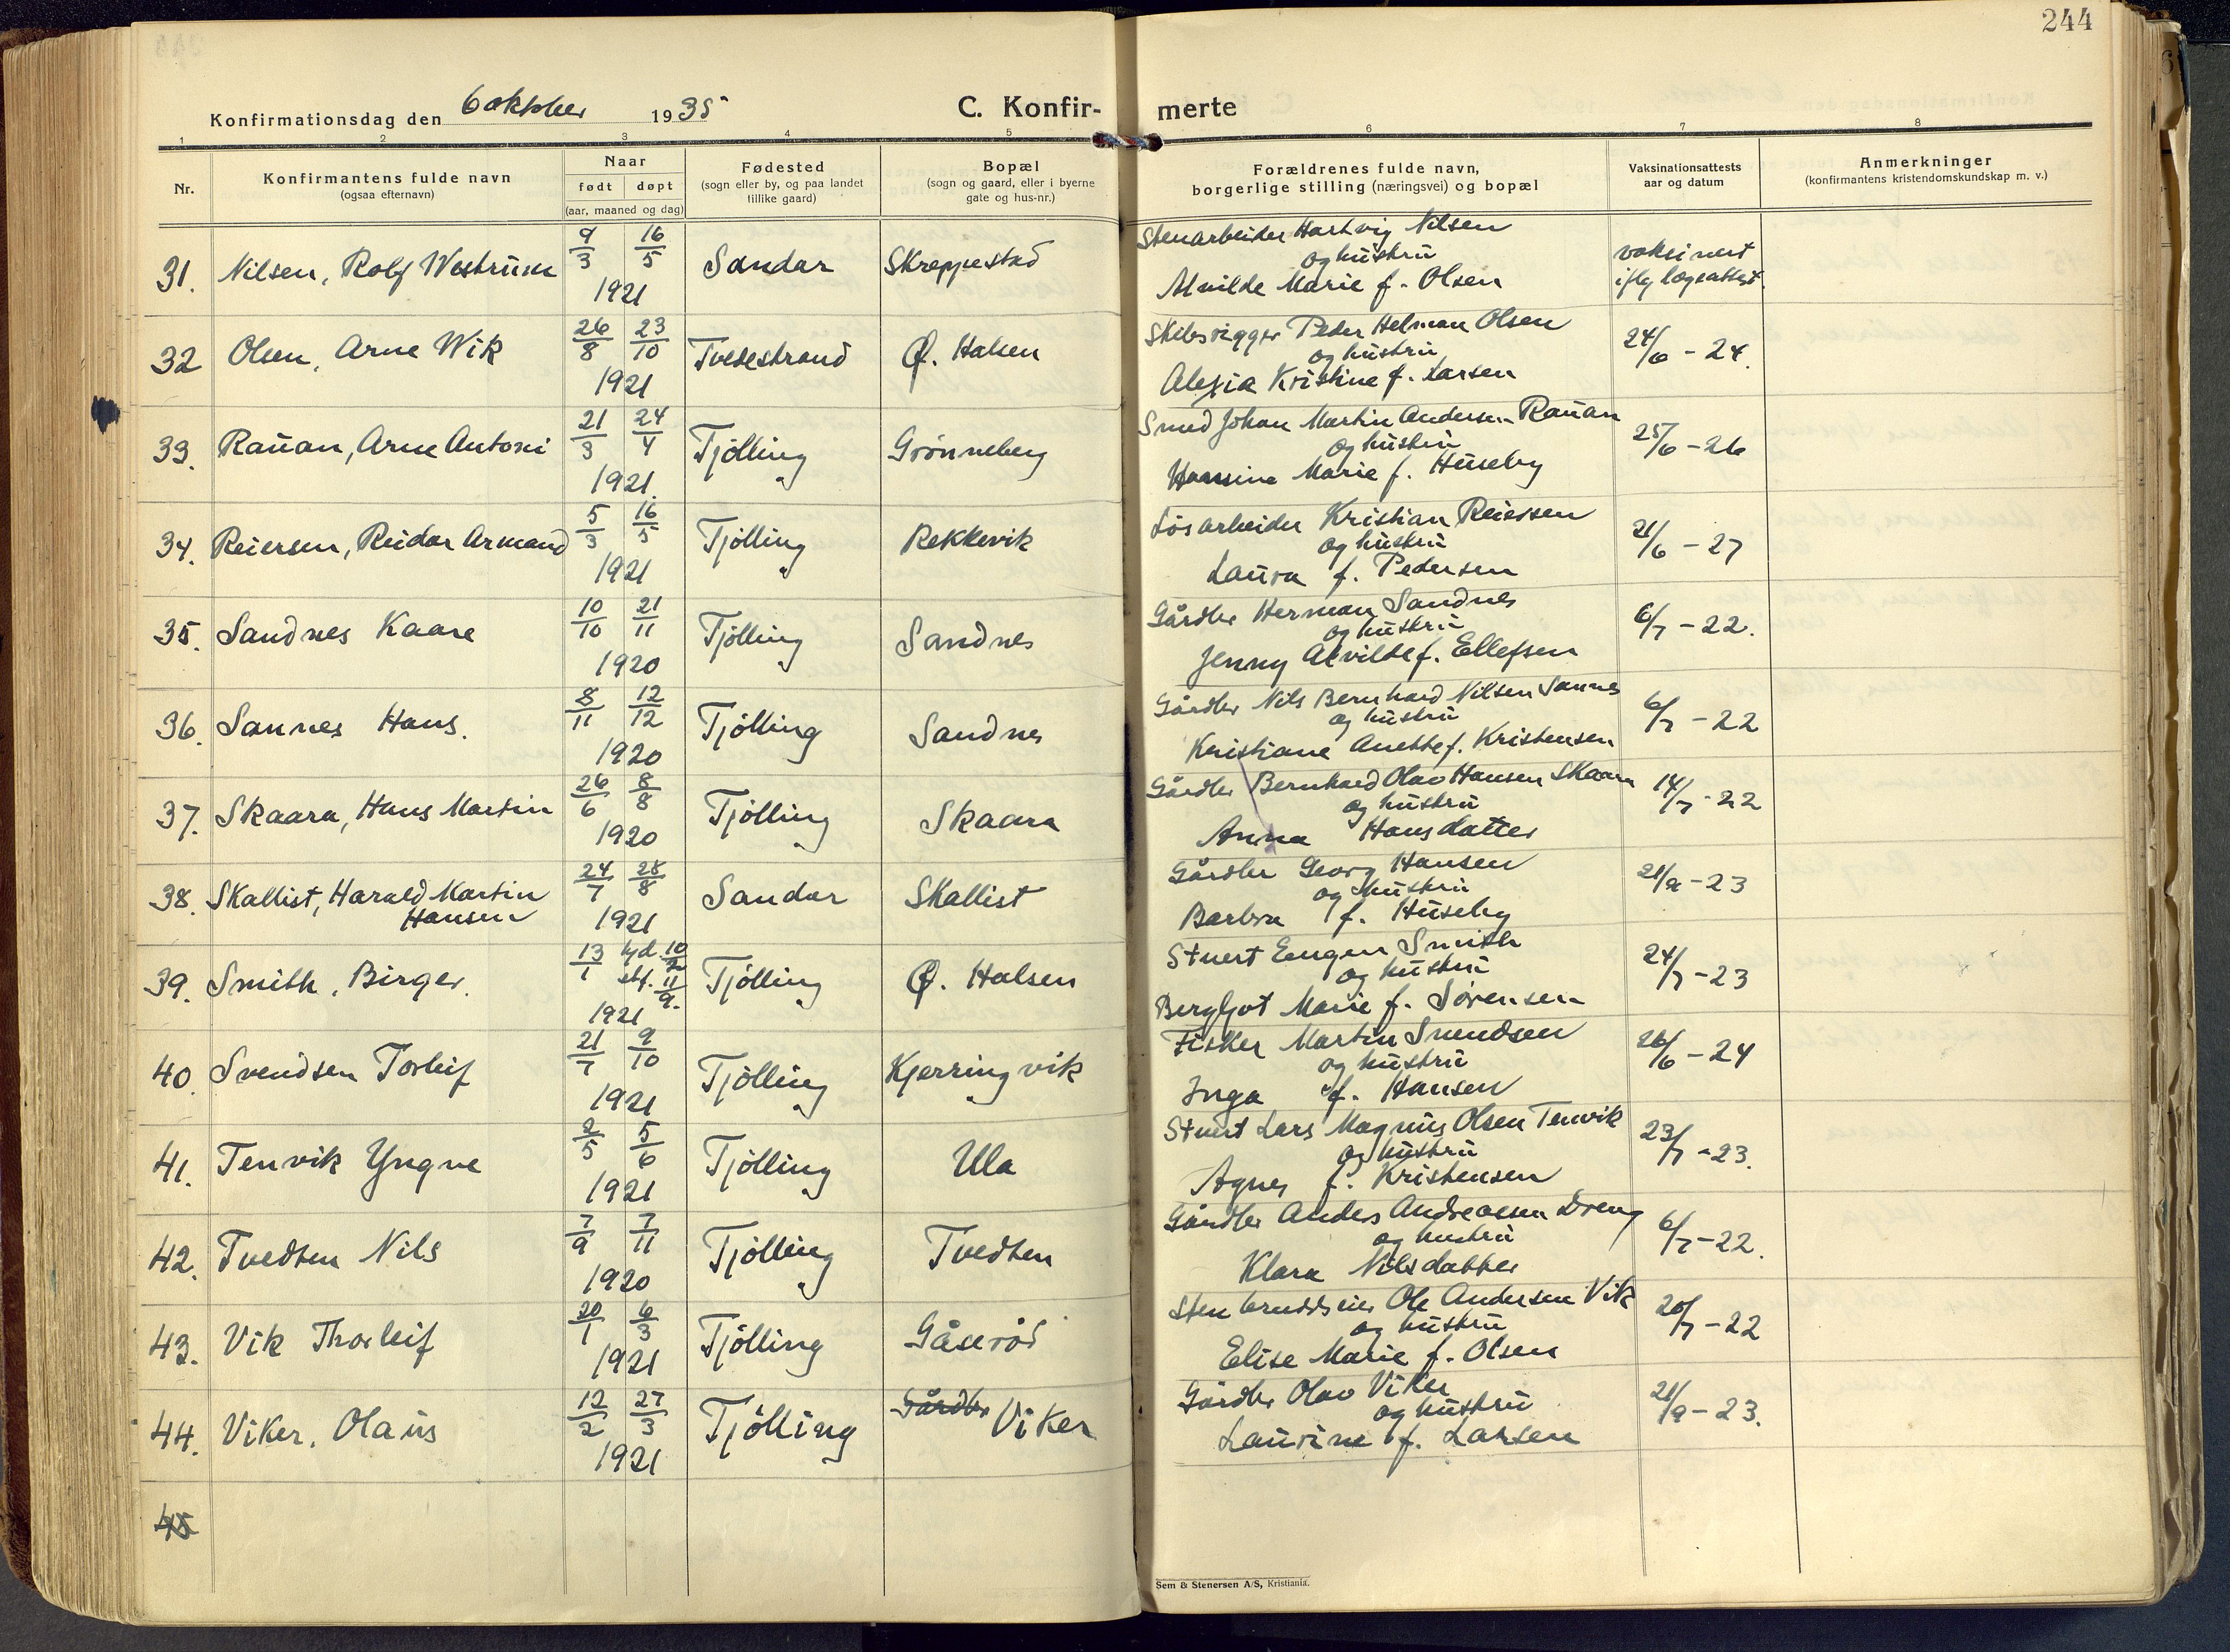 244
Konfirmationsdag den 6 oktober 1935
C. Konfir- merte
1 2 3 4 5 6 7 8
Nr.
Konfirmantens fulde navn
(ogsaa efternavn)
Naar
født døpt
(aar, maaned og dag)
Fødested
(sogn eller by, og paa landet
tillike gaard)
Bopæl
(sogn og gaard, eller i byerne
gate og hus-nr.)
Forældrenes fulde navn,
borgerlige stilling (næringsvei) og bopæl
Vaksinationsattests
aar og datum
Anmerkninger
(konfirmantens kristendomskundskap m. v.)
31. Nilsen, Rolf Westrum 9/3 16/5 1921 Sandar Skreppestad
Stenarbeider Hartvig Nilsen
og hustru
Alvilde Marie f. Olsen
vaksinert
iflg lægeattest.
32 Olsen, Arne Wik 26/8 23/10 1921 Tvedestrand Ø. Halsen
Skibsrigger Peder Helman Olsen
og hustru
Alexia Kristine f. Larsen
24/6 - 24.
33. Rauan, Arne Antoni 21/3 24/4 1921. Tjølling Grønneberg
Smed Johan Martin Andersen Rauan
og hustru
Hansine Marie f. Huseby
25/6 - 26
34. Reiersen, Reidar Armand 5/3 16/5 1921 Tjølling Rekkevik
Løsarbeider Kristian Reiersen
og hustru
Laura f. Pedersen
21/6 - 27
35. Sandnes Kaare 10/10 21/11 1920 Tjølling Sandnes
Gårdbr Herman Sandnes
og hustru
Jenny Alvilde f. Ellefsen
6/7 - 22.
36. Sannes Hans. 8/11 12/12 1920 Tjølling Sandnes
Gårdbr Nils Bernhard Nilsen Sannes
og hustru
Kristiane Anette f. Kristensen
6/7 - 22
37. Skaara, Hans Martin 26/6 8/8 1920 Tjølling Skaara
Gårdbr Bernhard Olav Hansen Skaara
og hustru
Anna Hansdatter
14/7 - 22
38. Skallist, Harald Martin
Hansen 24/7 28/8 1921 Sandar Skallist
Gårdbr Georg Hansen
og hustru
Barbra f. Huseby
21/9 - 23
39. Smith, Birger. 13/1 hjd. 10/2 stf. 11/9. 1921 Tjølling Ø. Halsen
Stuert Eugen Smith
og hustru
Bergljot Marie f. Sørensen
24/7 - 23
40. Svendsen Torleif 21/7 9/10 1921 Tjølling Kjerringvik
Fisker Martin Svendsen
og hustru
Inga f. Hansen
26/6 - 24
41. Tenvik Yngve 2/5 5/6 1921 Tjølling Ula
Stuert Lars Magnus Olsen Tenvik
og hustru
Agnes f. Kristensen
23/7 - 23.
42. Tvedten Nils 7/9 7/11 1920 Tjølling Tvedten
Gårdbr Anders Andreasen Dreng
og hustru
Klara Nilsdatter
6/7 - 22.
43. Vik Thorleif 20/1 6/3 1921 Tjølling Gåserød
Stenbruddseier Ole Andersen Vik
og hustru
Elise Marie f. Olsen
20/7 - 22
44. Viker, Olaus 12/2 27/3 1921 Tjølling Gårdbr Viker
Gårdbr Olav Viker
og hustru
Laurine f. Larsen
21/9 - 23.
45
Sem & Stenersen A/S, Kristiania.